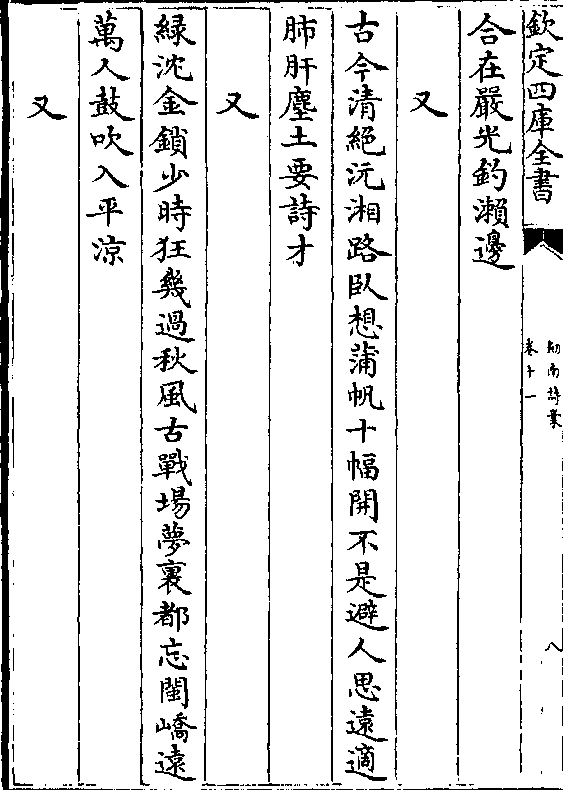 欽定四庫全書
劍南詩稾
卷十一
八
合在嚴光釣瀨邊
又
古今清絕沅湘路臥想蒲帆十幅開不是避人思遠適
肺肝塵土要詩才
又
緑沈金鎖少時狂幾過秋風古戰場夢裏都忘閩嶠遠
萬人鼓吹入平涼
又